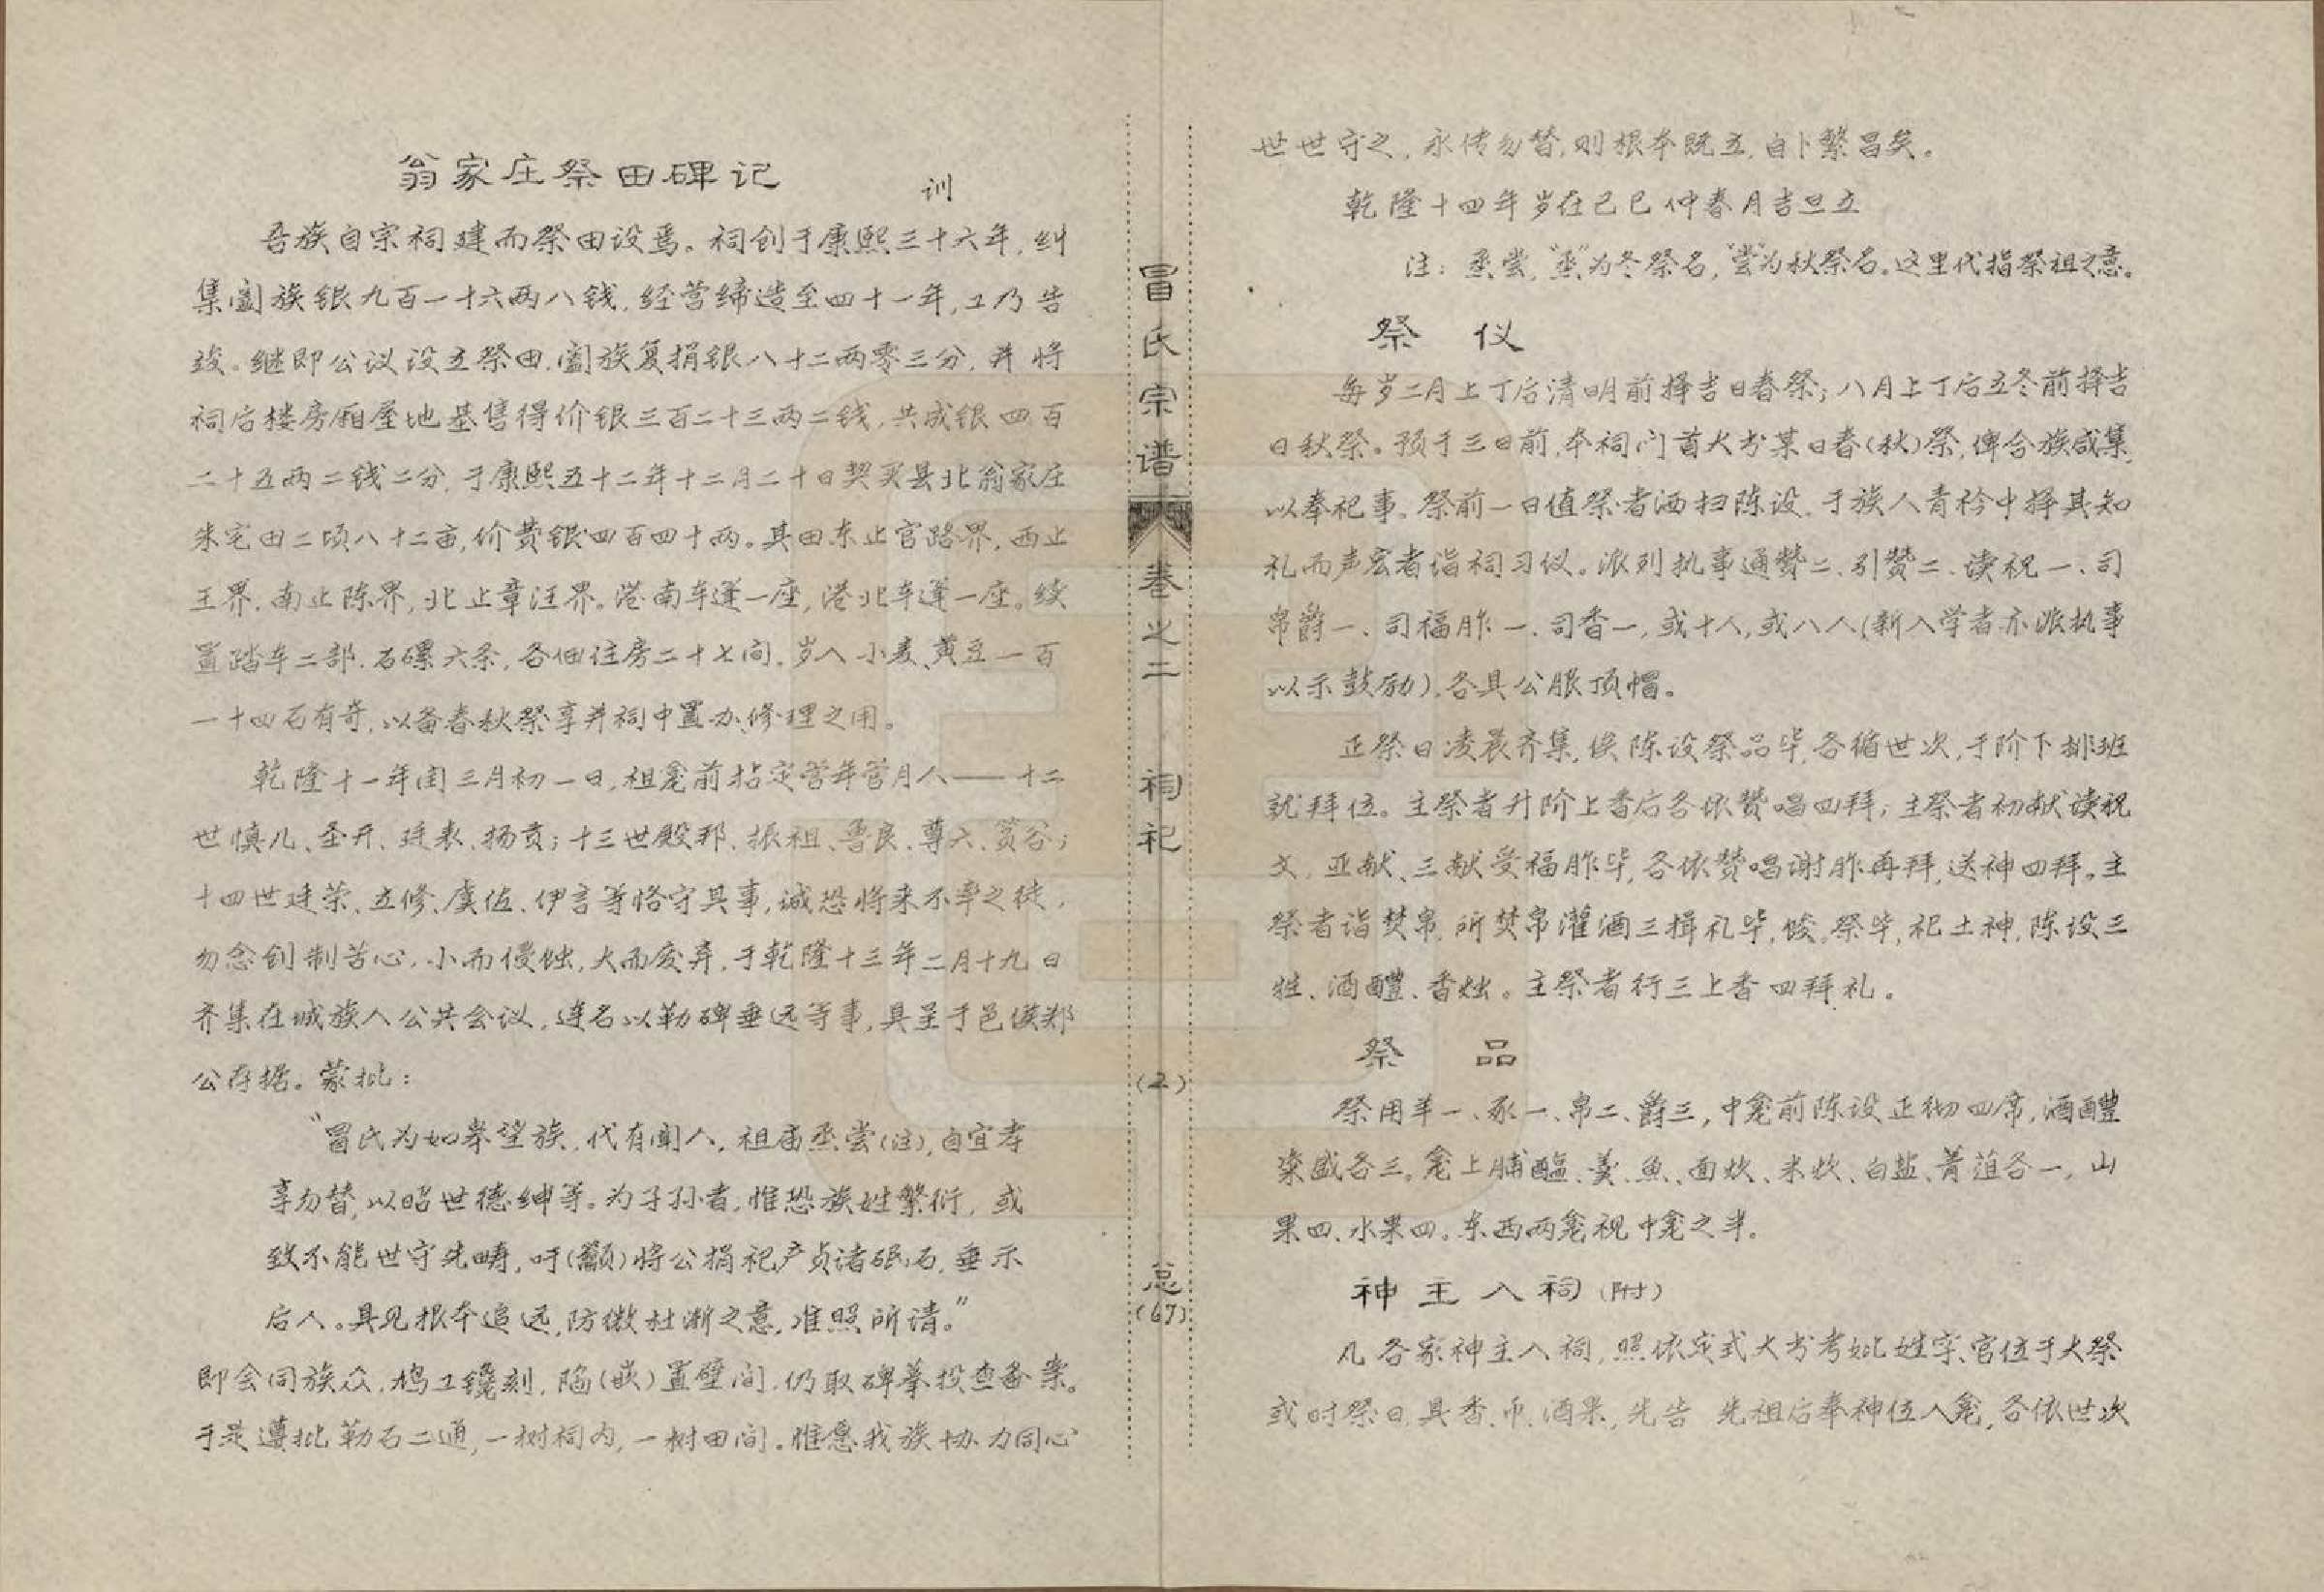 翁家庄祭田碑记
训
吾族自宗祠建而祭田设焉。祠创于康熙三十六年,纠
集阖族银九百一十六两八钱,经营缔造至四十一年,工乃告
竣。继即公议设立祭田,阖族复捐银八十二两零三分,并将
祠后楼房厢屋地基售得价银三百二十三两二钱,共成银四百
二十五两二钱二分,于康熙五十二年十二月二十日契买县北翁家庄
朱宅田二顷八十二亩,价费银四百四十两。其田东止官路界,西止
王界,南止陈界,北止章汪界。港南车篷一座,港北车篷一座。续
置踏车二部,石磙六条,各佃住房二十七间。岁入小麦、黄豆一百
一十四石有奇,以备春秋祭享并祠中置办、修理之用。
乾隆十一年闰三月初一日,祖龛前拈定管年管月人——十二
世慎儿、圣开、廷表、扬贡;十三世殿邦、振祖、鲁良、尊六、贲谷;
十四世廷荣、立修、虞佐、伊言等恪守其事,诚恐将来不率之徒,
勿念创制苦心,小而侵蚀,大而废弃,于乾隆十三年二月十九日
齐集在城族人公共会议,连名以勒碑垂远等事,具呈于邑侯郑
公存据。蒙批:
“冒氏为如皋望族,代有闻人,祖庙烝尝(注),自宜孝
享勿替,以昭世德绅等。为子孙者,惟恐族姓繁衍,或
致不能世守先畴,吁(籲)将公捐祀产贞诸珉石,垂示
后人。具见报本追远,防微杜渐之意,准照所请。”
即会同族众,鸠工镵刻,陷(嵌)置壁间,仍取碑摹投查备案。
于是遵批勒石二通,一树祠内,一树田间。惟愿我族协力同心
冒氏宗谱
卷之二
祠祀
(2)
总
(67)
世世守之,永传勿替,则根本既立,自卜繁昌矣。
乾隆十四年岁在己巳仲春月吉旦立
注:烝尝,“烝”为冬祭名,“尝”为秋祭名。这里代指祭祖之意。
祭 仪
每岁二月上丁后清明前择吉日春祭;八月上丁后立冬前择吉
日秋祭。预于三日前,本祠门首大书某日春(秋)祭,俾合族咸集,
以奉祀事。祭前一日值祭者洒扫陈设,于族人青衿中择其知
礼而声宏者诣祠习仪。派列执事通赞二、引赞二、读祝一、司
帛爵一、司福胙一、司香一,或十人,或八人(新入学者亦派执事
以示鼓励),各具公服顶帽。
正祭日凌晨齐集,俟陈设祭品毕,各循世次,于阶下排班
就拜位。主祭者升阶上香后各依赞唱四拜;主祭者初献读祝
文,亚献、三献受福胙毕,各依赞唱谢胙再拜,送神四拜。主
祭者诣焚帛,所焚帛灌酒三揖礼毕,馂。祭毕,祀土神,陈设三
牲、酒醴、香烛。主祭者行三上香四拜礼。
祭 品
祭用羊一、豕一、帛二、爵三,中龛前陈设正彻四席,酒醴
粢盛各三。龛上脯醢、羹、鱼、面炊、米炊、白盐、菁菹各一,山
果四、水果四。东西两龛视中龛之半。
神主入祠(附)
凡各家神主入祠,照依定式大书考妣姓字、官位于大祭
或时祭日,具香、帛、酒果,先告 先祖后奉神位入龛,各依世次